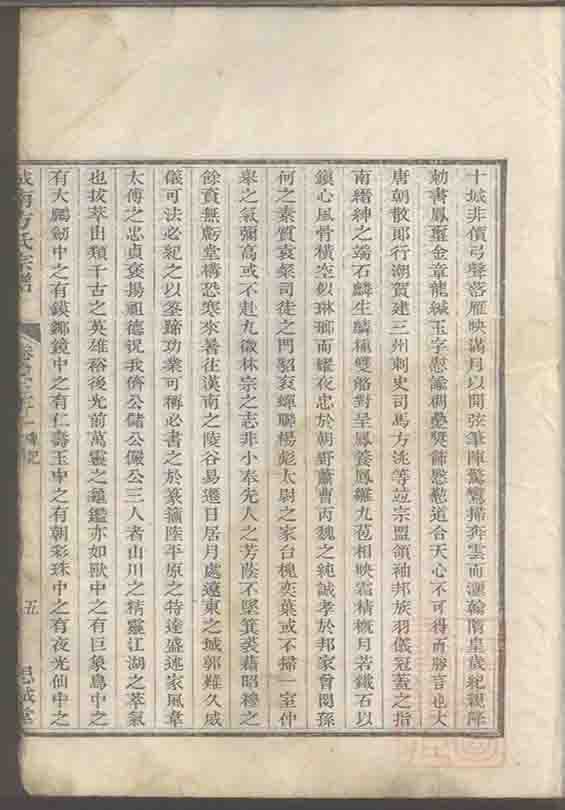 十城非價弓聲落雁映滿月以開弦筆陣驚鸞掃奔雲而灑翰隋皇歲紀親降
勅書鳳璽金章龍緘玉字慰諭稠疊獎飾慇懃道合天心不可得而勝言也大
唐朝散郎行潮賀建三州刺史司馬方洮等竝宗盟領袖邦族羽儀冠蓋之指
南縉紳之端石麟生麟種雙骼對呈鳳養鳳雛九苞相映霜精概月若鐵石以
鎮心風骨橫空似琳瑯而耀夜忠於朝野蕭曹丙魏之純誠孝於邦家曾閔孫
何之素質袁粲司徒之門貂哀蟬聯楊彪太尉之家台槐奕葉或不掃一室仲
舉之氣彌高或不赴九徵林宗之志非小奉先人之芳蔭不墜箕裘藉昭穆之
餘賁無虧堂構恐寒來暑往漢南之陵谷易遷日居月處遼東之城郭難久威
儀可法必紀之以筌蹄功業可稱必書之於篆籀陸平原之特達盛述家風韋
太傅之忠貞褒揚祖德況我儕公儲公儼公三人者山川之精靈江湖之萃氣
也拔萃出類千古之英雄裕後光前萬靈之龜鑑亦如獸中之有巨象鳥中之
有大鵬劒中之有鏌鋣鏡中之有仁壽玉中之有朝彩珠中之有夜光仙中之
方氏宗譜
五
思誠堂